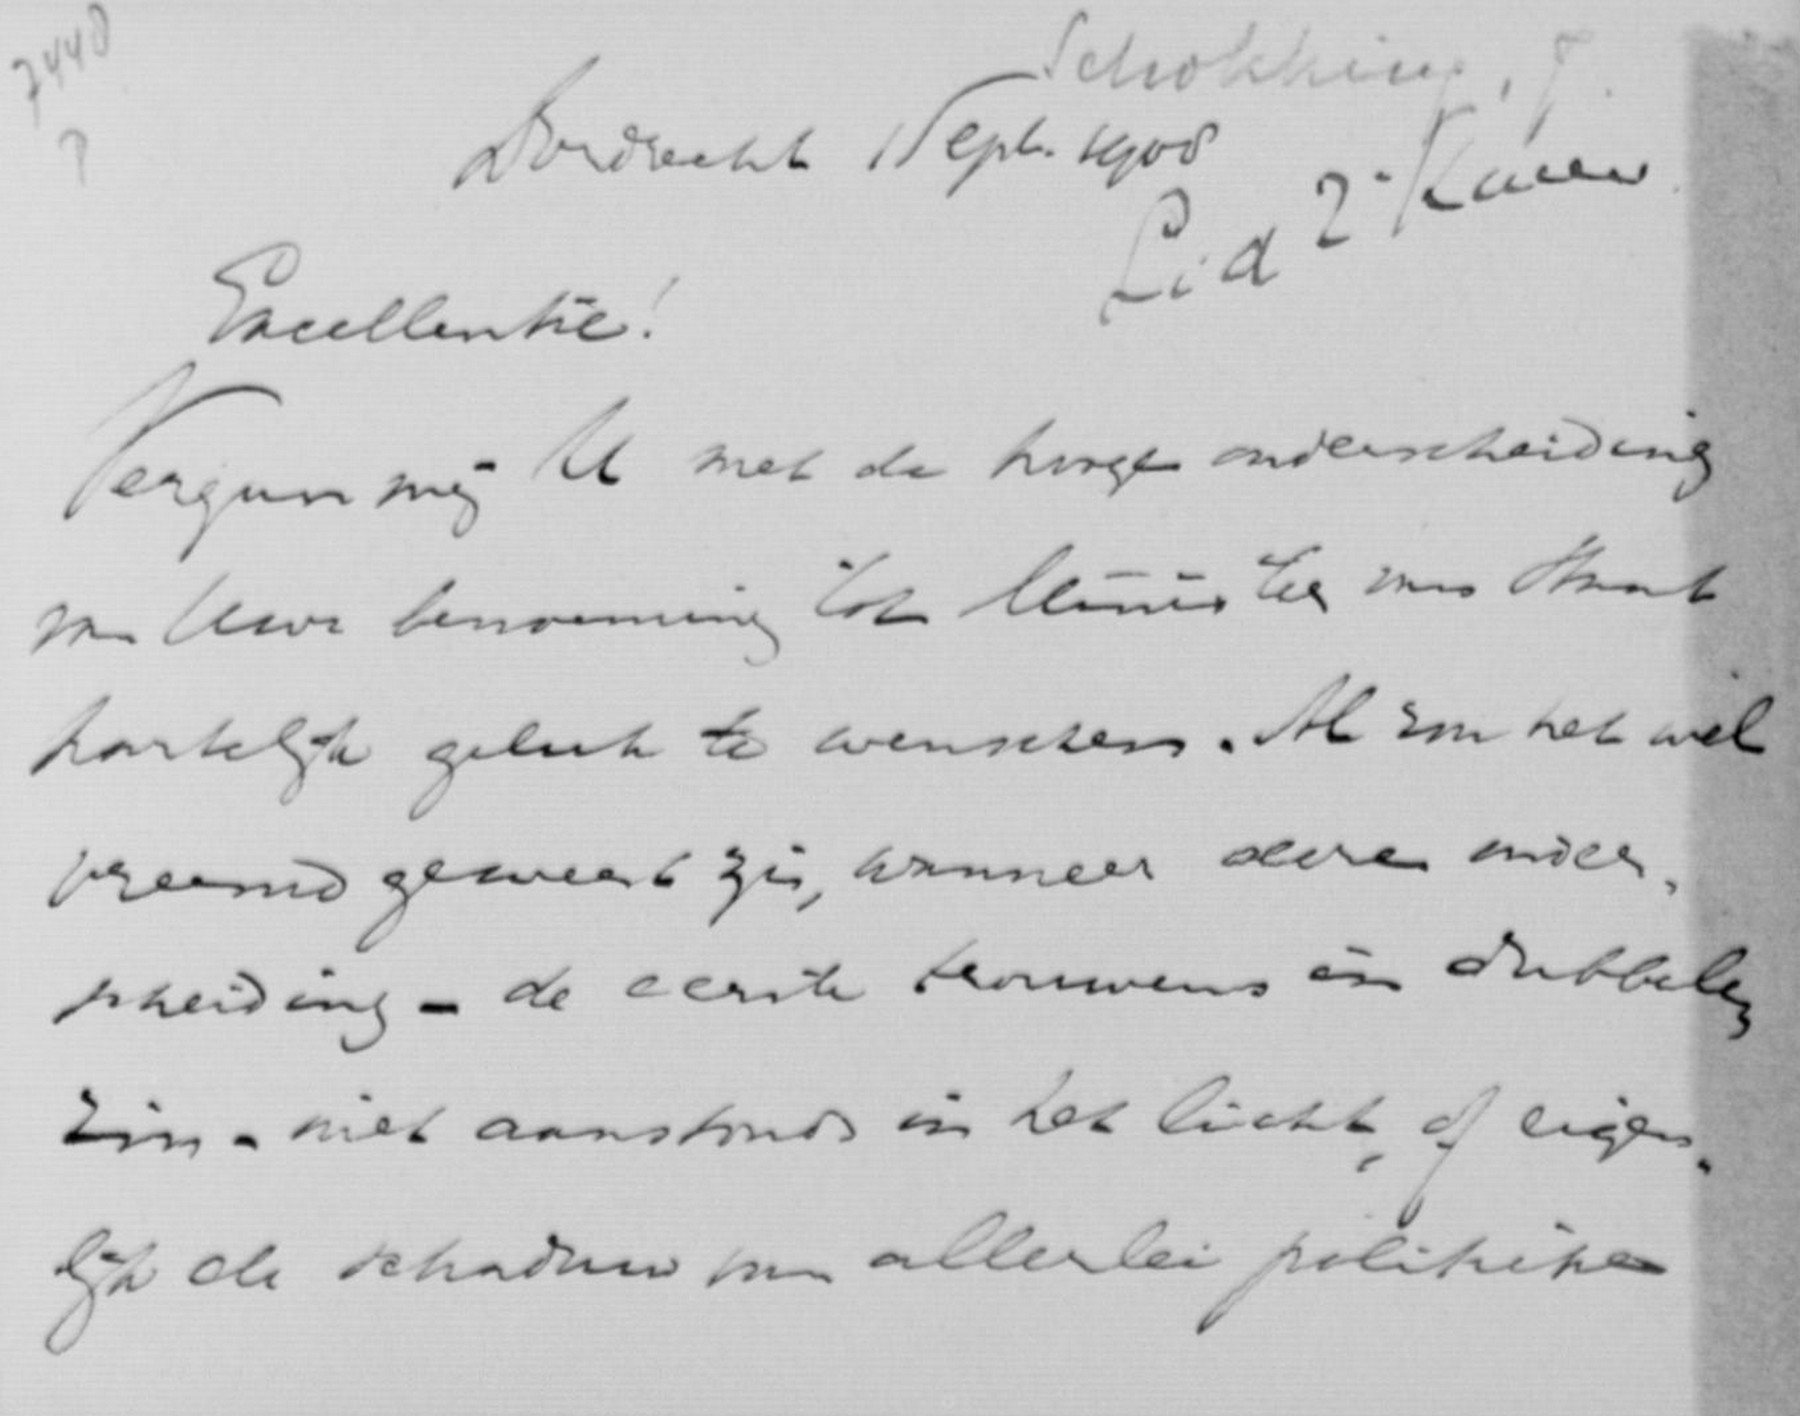 7448
?
Schokking, J.
Dordrecht 1 Sept. 1908
Lid 2e Kamer
Excellentie!
Vergun mij U met de hooge onderscheiding
van Uwe benoeming tot Minister van Staat
hartelijk geluk te wenschen. Al zou het wel
vreemd geweest zijn, wanneer deze onder-
scheiding - de eerste trouwens in dubbelen
zin - niet aanstonds in het licht, of eigen-
lijk de schaduw van allerlei politieke